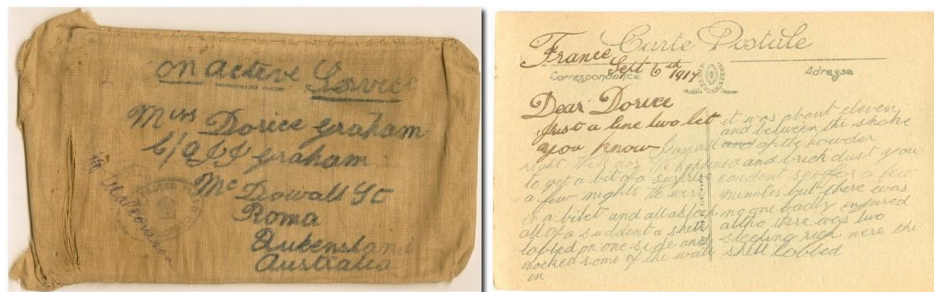 on active Service
Miss Dorice Graham
C/o J J Graham
McDowall St
Roma
Queensland
Australia
Carte Postale
France
Sept 6th 1917
Correspondance
Adresse
Dear Dorice
Just a line two let
you know
right
to get a bit of a surprise
a few nights
in a bilet and all asleep
all of a suddent a shell
lobbed on one side and
nocked some of the wall
in
it was about eleven
and between the smoke
and of the powder
and brick dust you
couldent see for a few
minutes but there was
no one badly injured
altho there was two
sleeping rich were the
shell lobbed